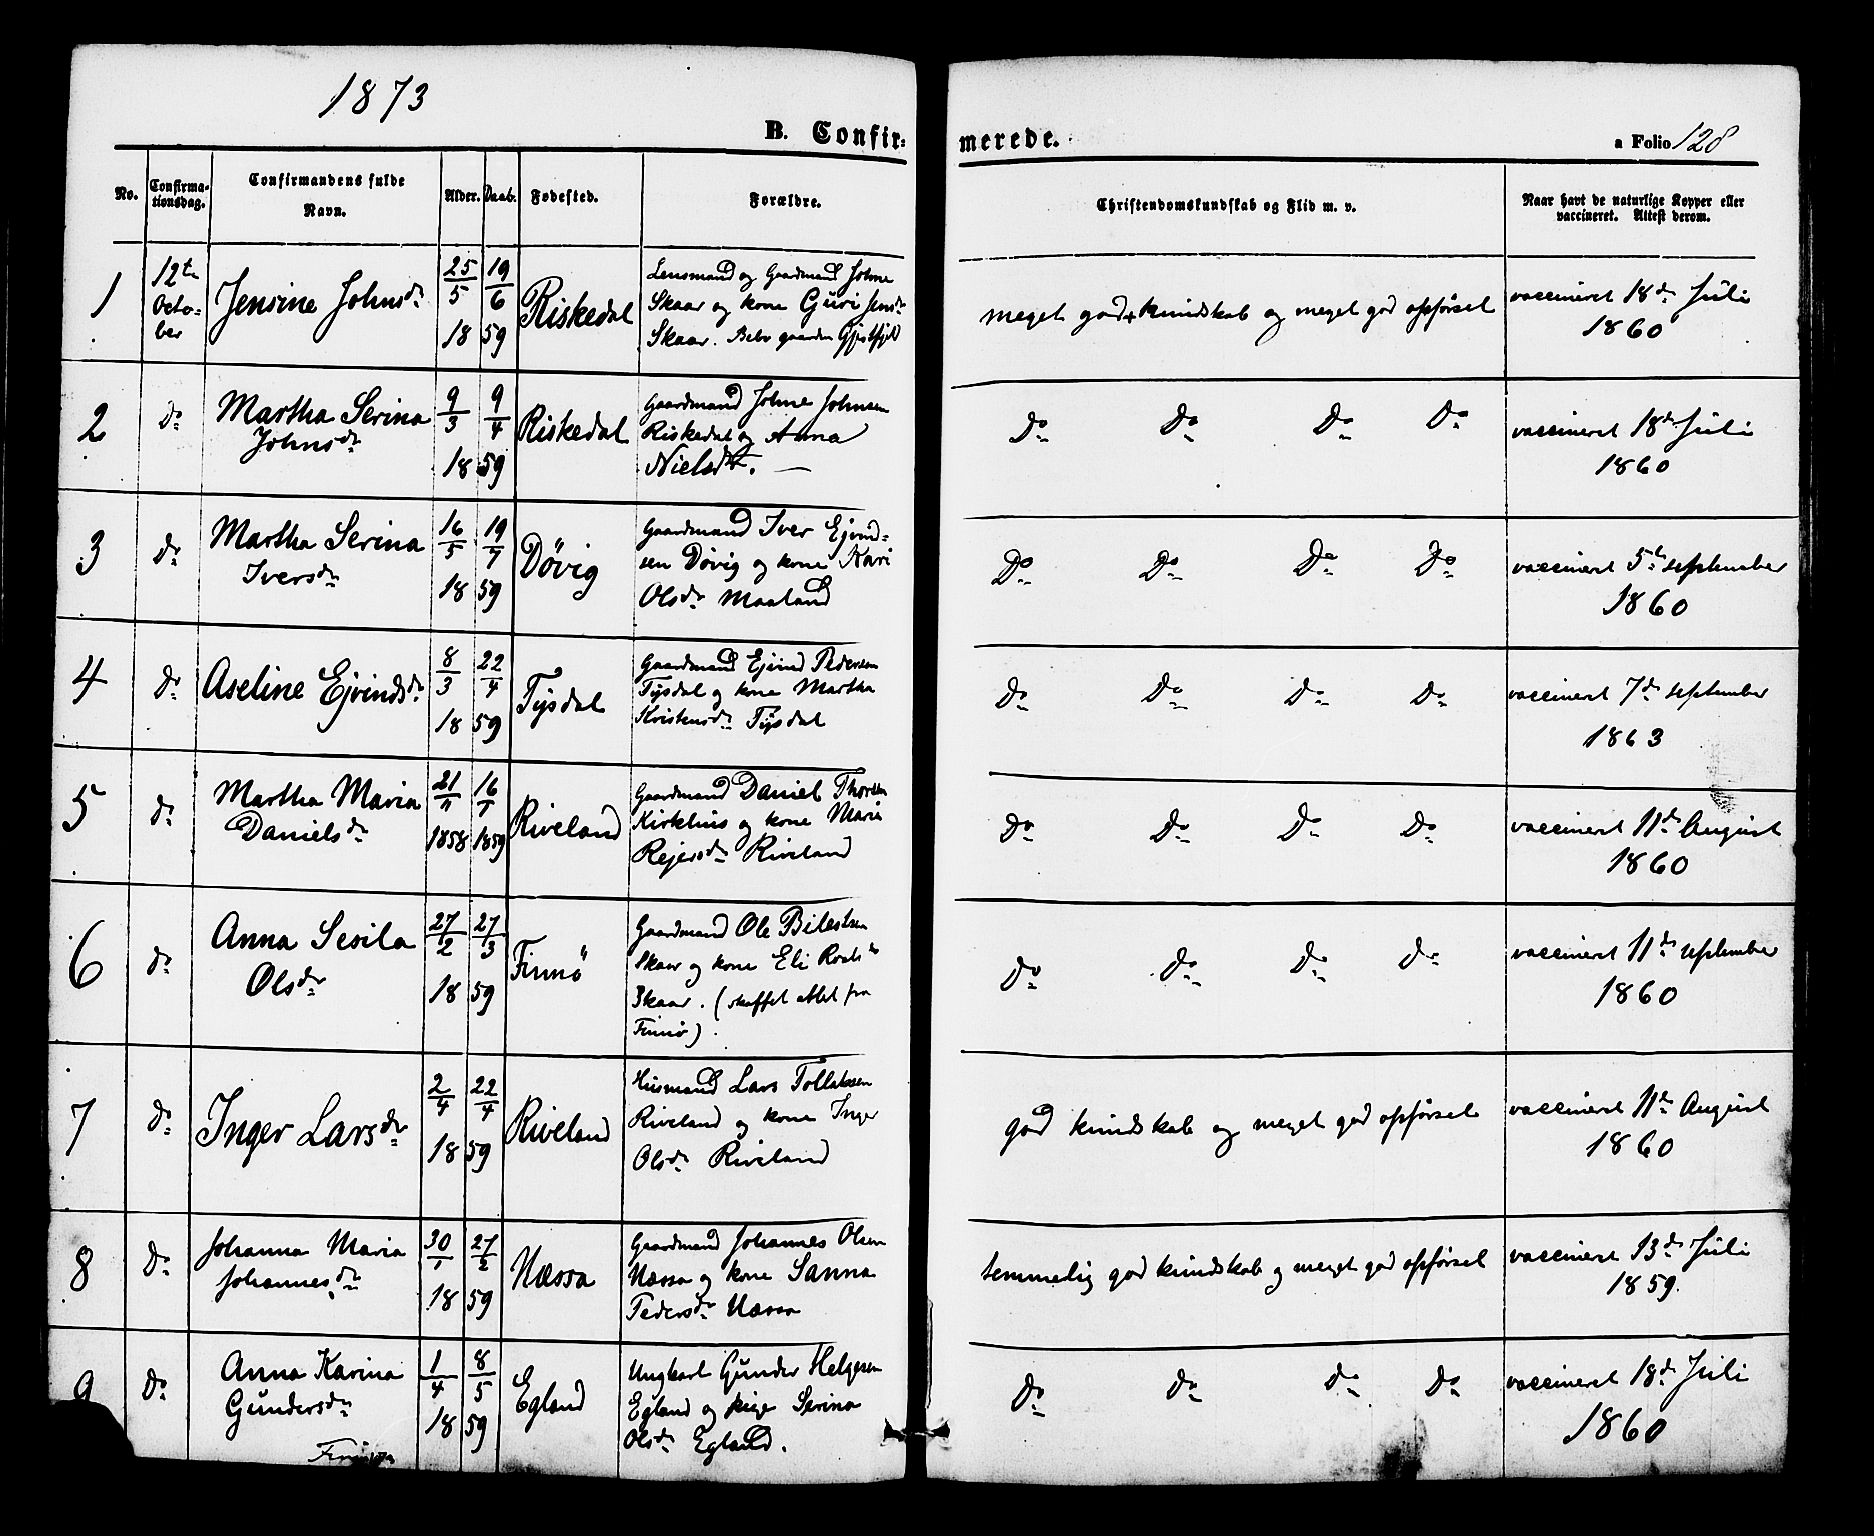 1873
B. Confir-
merede.
a Folio 128
No.
Confirma-
tionsdag.
Confirmandens fulde
Navn.
Alder.
Daab.
Fødested.
Forældre.
Christendomskundskab og Flid m. v.
Naar havt de naturlige Kopper eller
vaccineret. Attest derom.
1
12te
Octo-
ber
Jensine Johnsdr
25/5
18
19/6
59
Riskedal
Lensmand og Gaardmand Johne
Skaar og kone Guri Jensdr
Skaar. Bebr gaarden
meget god kundskab og meget god opførsel
vaccineret 18de Juli
1860
2
Do
Martha Serina
Johnsdr
9/3
18
9/4
59
Riskedal
Gaardmand Johne Johnsen
Riskedal og Anna
Nielsdt. —
Do Do Do Do
vaccineret 18de Juli
1860
3
Do
Martha Serina
Iversdr
16/5
18
19/7
59
Døvig
Gaardmand Iver Ejvind-
sen Døvig og kone Kari
Olsdr Maaland
Do Do Do Do
vaccineret 5te september
1860
4
Do
Aseline Ejvindsdr
8/3
18
22/4
59
Tysdal
Gaardmand Ejvind Pedersen
Tysdal og kone Martha
Kristensdr Tysdal
Do Do Do Do
vaccineret 7de september
1863
5
Do
Martha Maria
Danielsdr
21/11
1858
16/1
1859
Riveland
Gaardmand Daniel Thorsen
Kirkhus og kone Mari
Rejersdr Riveland
Do Do Do Do
vaccineret 11de August
1860
6
Do
Anna Sesila
Olsdr
27/2
18
27/3
59
Finnø
Gaardmand Ole
Skaar og kone Eli
Skaar. (skaffet attest fra
Finnø).
Do Do Do Do
vaccineret 11de september
1860
7
Do
Inger Larsdr
2/4
18
22/4
59
Riveland
Husmand Lars Tollaksen
Riveland og kone Inger
Olsdr Riveland
god kundskab og meget god opførsel
vaccineret 11te August
1860
8
Do
Johanna Maria
Johannesdr
30/1
18
27/2
59
Næssa
Gaardmand Johannes Olsen
Næssa og kone Sanna
Pedersdr Næssa
temmelig god kundskab og meget god opførsel
vaccineret 13de Juli
1859.
9
Do
Anna Karina
Gundersdr
1/4
18
8/5
59
Egland
Ungkarl Gunder Helgesen
Egland og pige Serina
Olsdr Egland.
Do Do Do Do
vaccineret 18de Juli
1860